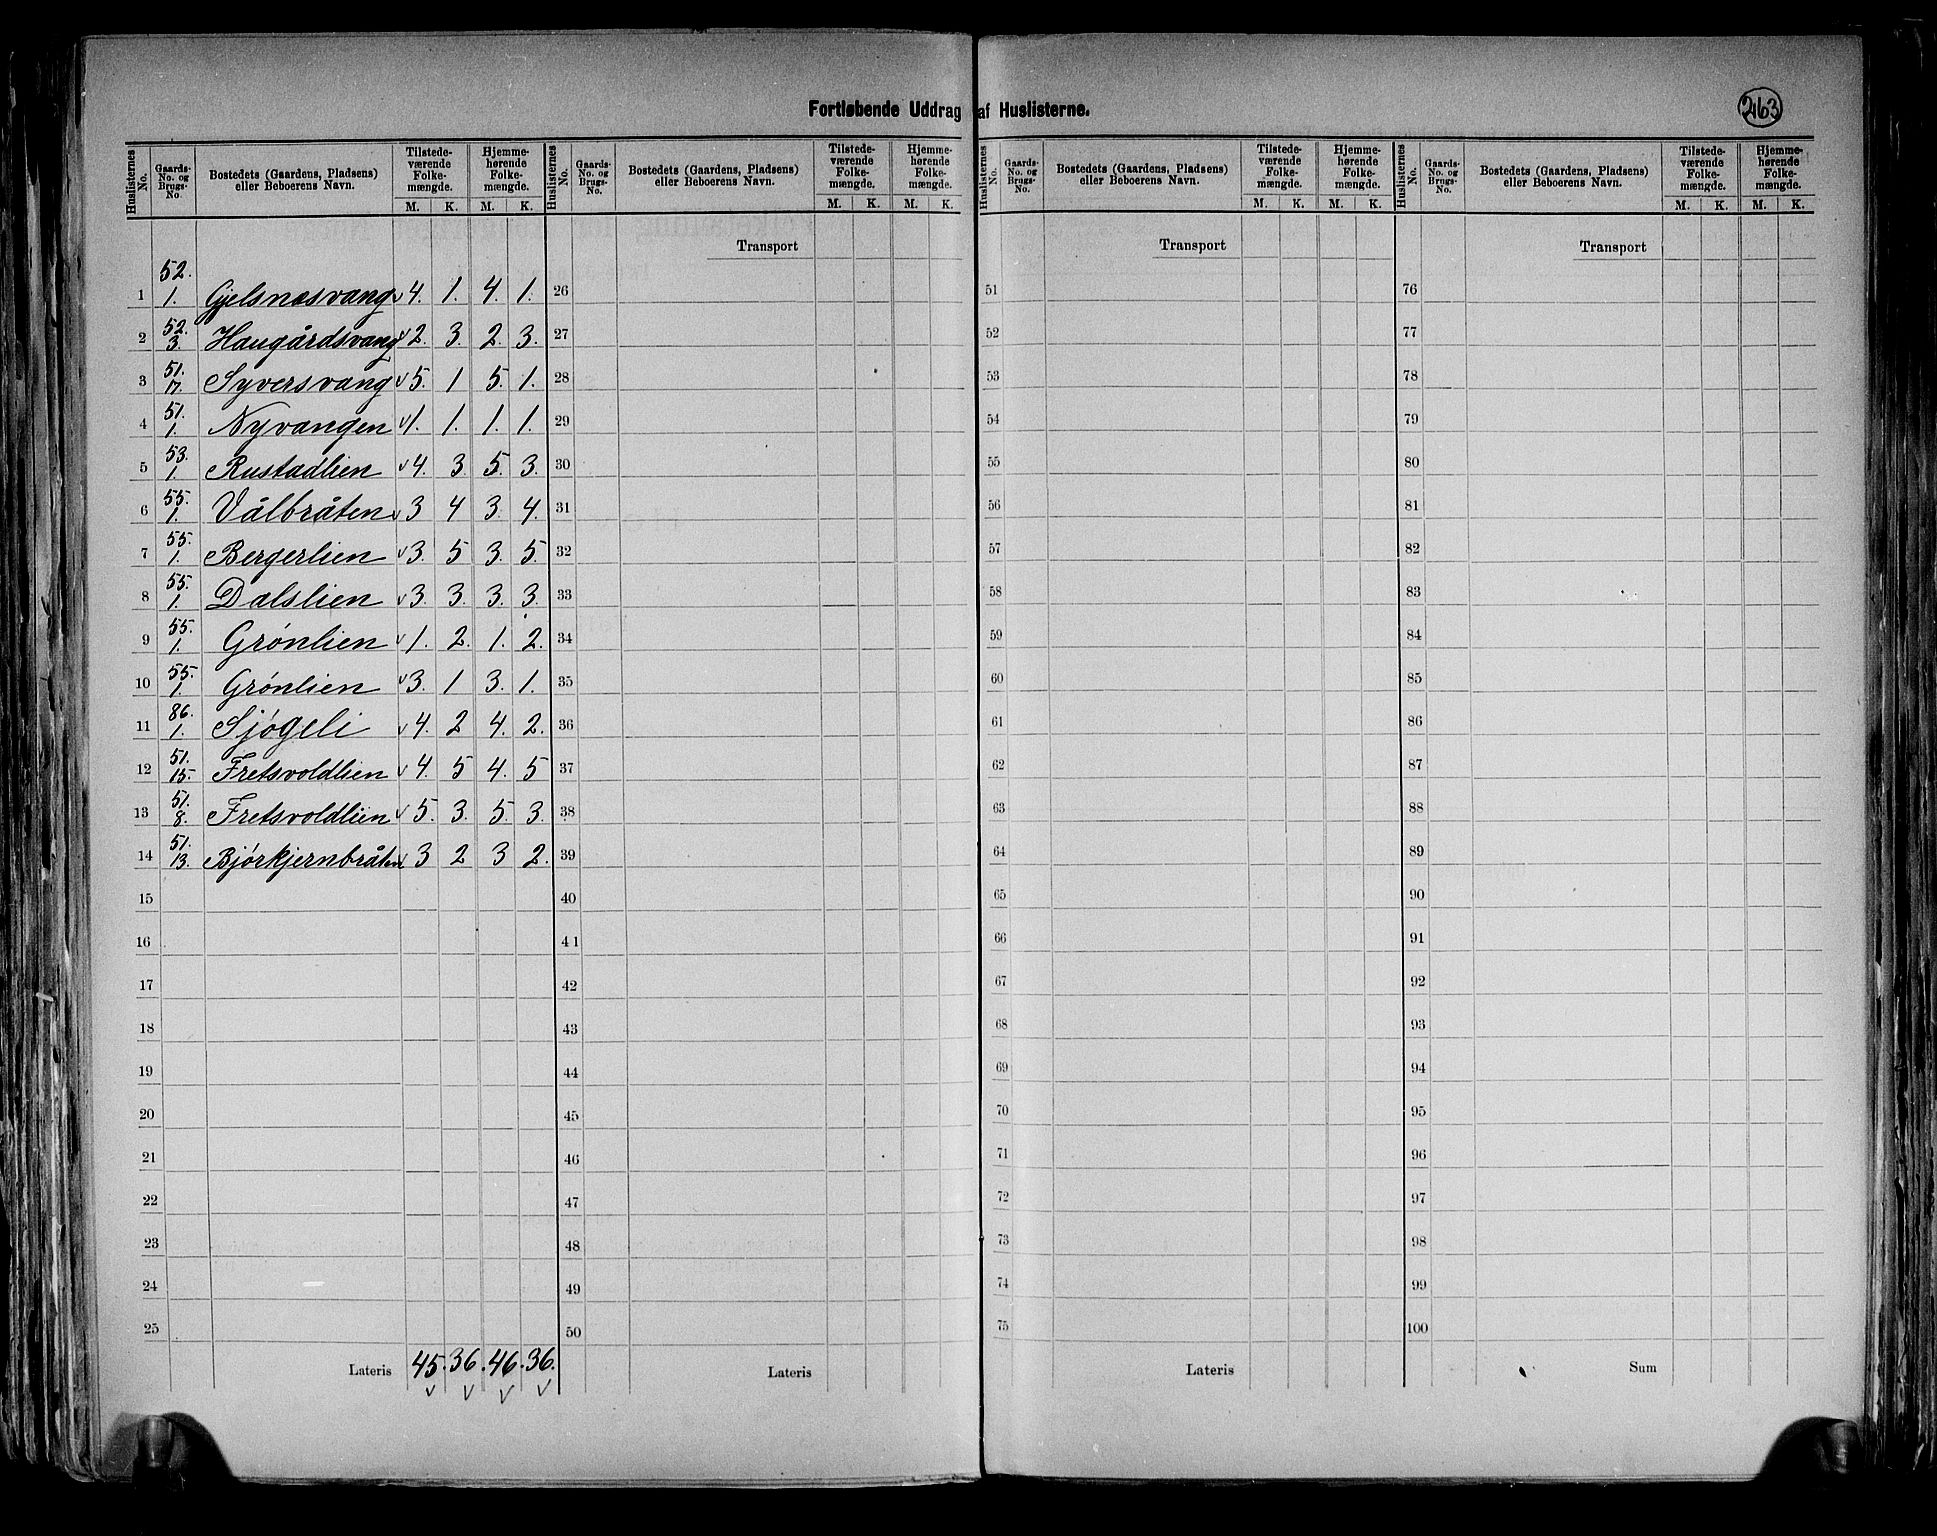 Fortløbende Uddrag af Huslisterne.
263
Huslisternes No. | Gaards-No. og Brugs-No. | Bostedets (Gaardens, Pladsens) eller Beboerens Navn. | Tilstedeværende Folkemængde. M. K. | Hjemmehørende Folkemængde. M. K.
Huslisternes No. | Gaards-No. og Brugs-No. | Bostedets (Gaardens, Pladsens) eller Beboerens Navn. | Tilstedeværende Folkemængde. M. K. | Hjemmehørende Folkemængde. M. K.
Huslisternes No. | Gaards-No. og Brugs-No. | Bostedets (Gaardens, Pladsens) eller Beboerens Navn. | Tilstedeværende Folkemængde. M. K. | Hjemmehørende Folkemængde. M. K.
Huslisternes No. | Gaards-No. og Brugs-No. | Bostedets (Gaardens, Pladsens) eller Beboerens Navn. | Tilstedeværende Folkemængde. M. K. | Hjemmehørende Folkemængde. M. K.
Transport Transport Transport
1 52. 1. Gjelsnæsvang 4. 1. 4. 1. 26 51 76
2 52. 3. Haugårdsvang 2. 3. 2. 3. 27 52 77
3 51. 17. Syversvang 5. 1 5. 1. 28 53 78
4 51. 1. Nyvangen 1. 1. 1. 1. 29 54 79
5 53. 1. Rustadlien 4. 3 5. 3. 30 55 80
6 55. 1. Vålbråten 3 4 3. 4. 31 56 81
7 55. 1. Bergerlien 3. 5 3. 5. 32 57 82
8 55. 1. Dalslien 3. 3. 3. 3. 33 58 83
9 55. 1. Grønlien 1. 2. 1. 2. 34 59 84
10 55. 1. Grønlien 3. 1 3. 1. 35 60 85
11 86. 1. Sjøgeli 4. 2 4. 2. 36 61 86
12 51. 15. Fretsvoldlien 4. 5 4. 5 37 62 87
13 51. 8. Fretsvoldlien 5. 3. 5. 3. 38 63 88
14 51. 13. Bjørkjernbråten 3 2 3 2. 39 64 89
15 40 65 90
16 41 66 91
17 42 67 92
18 43 68 93
19 44 69 94
20 45 70 95
21 46 71 96
22 47 72 97
23 48 73 98
24 49 74 99
25 50 75 100
Lateris 45. 36. 46. 36. Lateris Lateris Sum